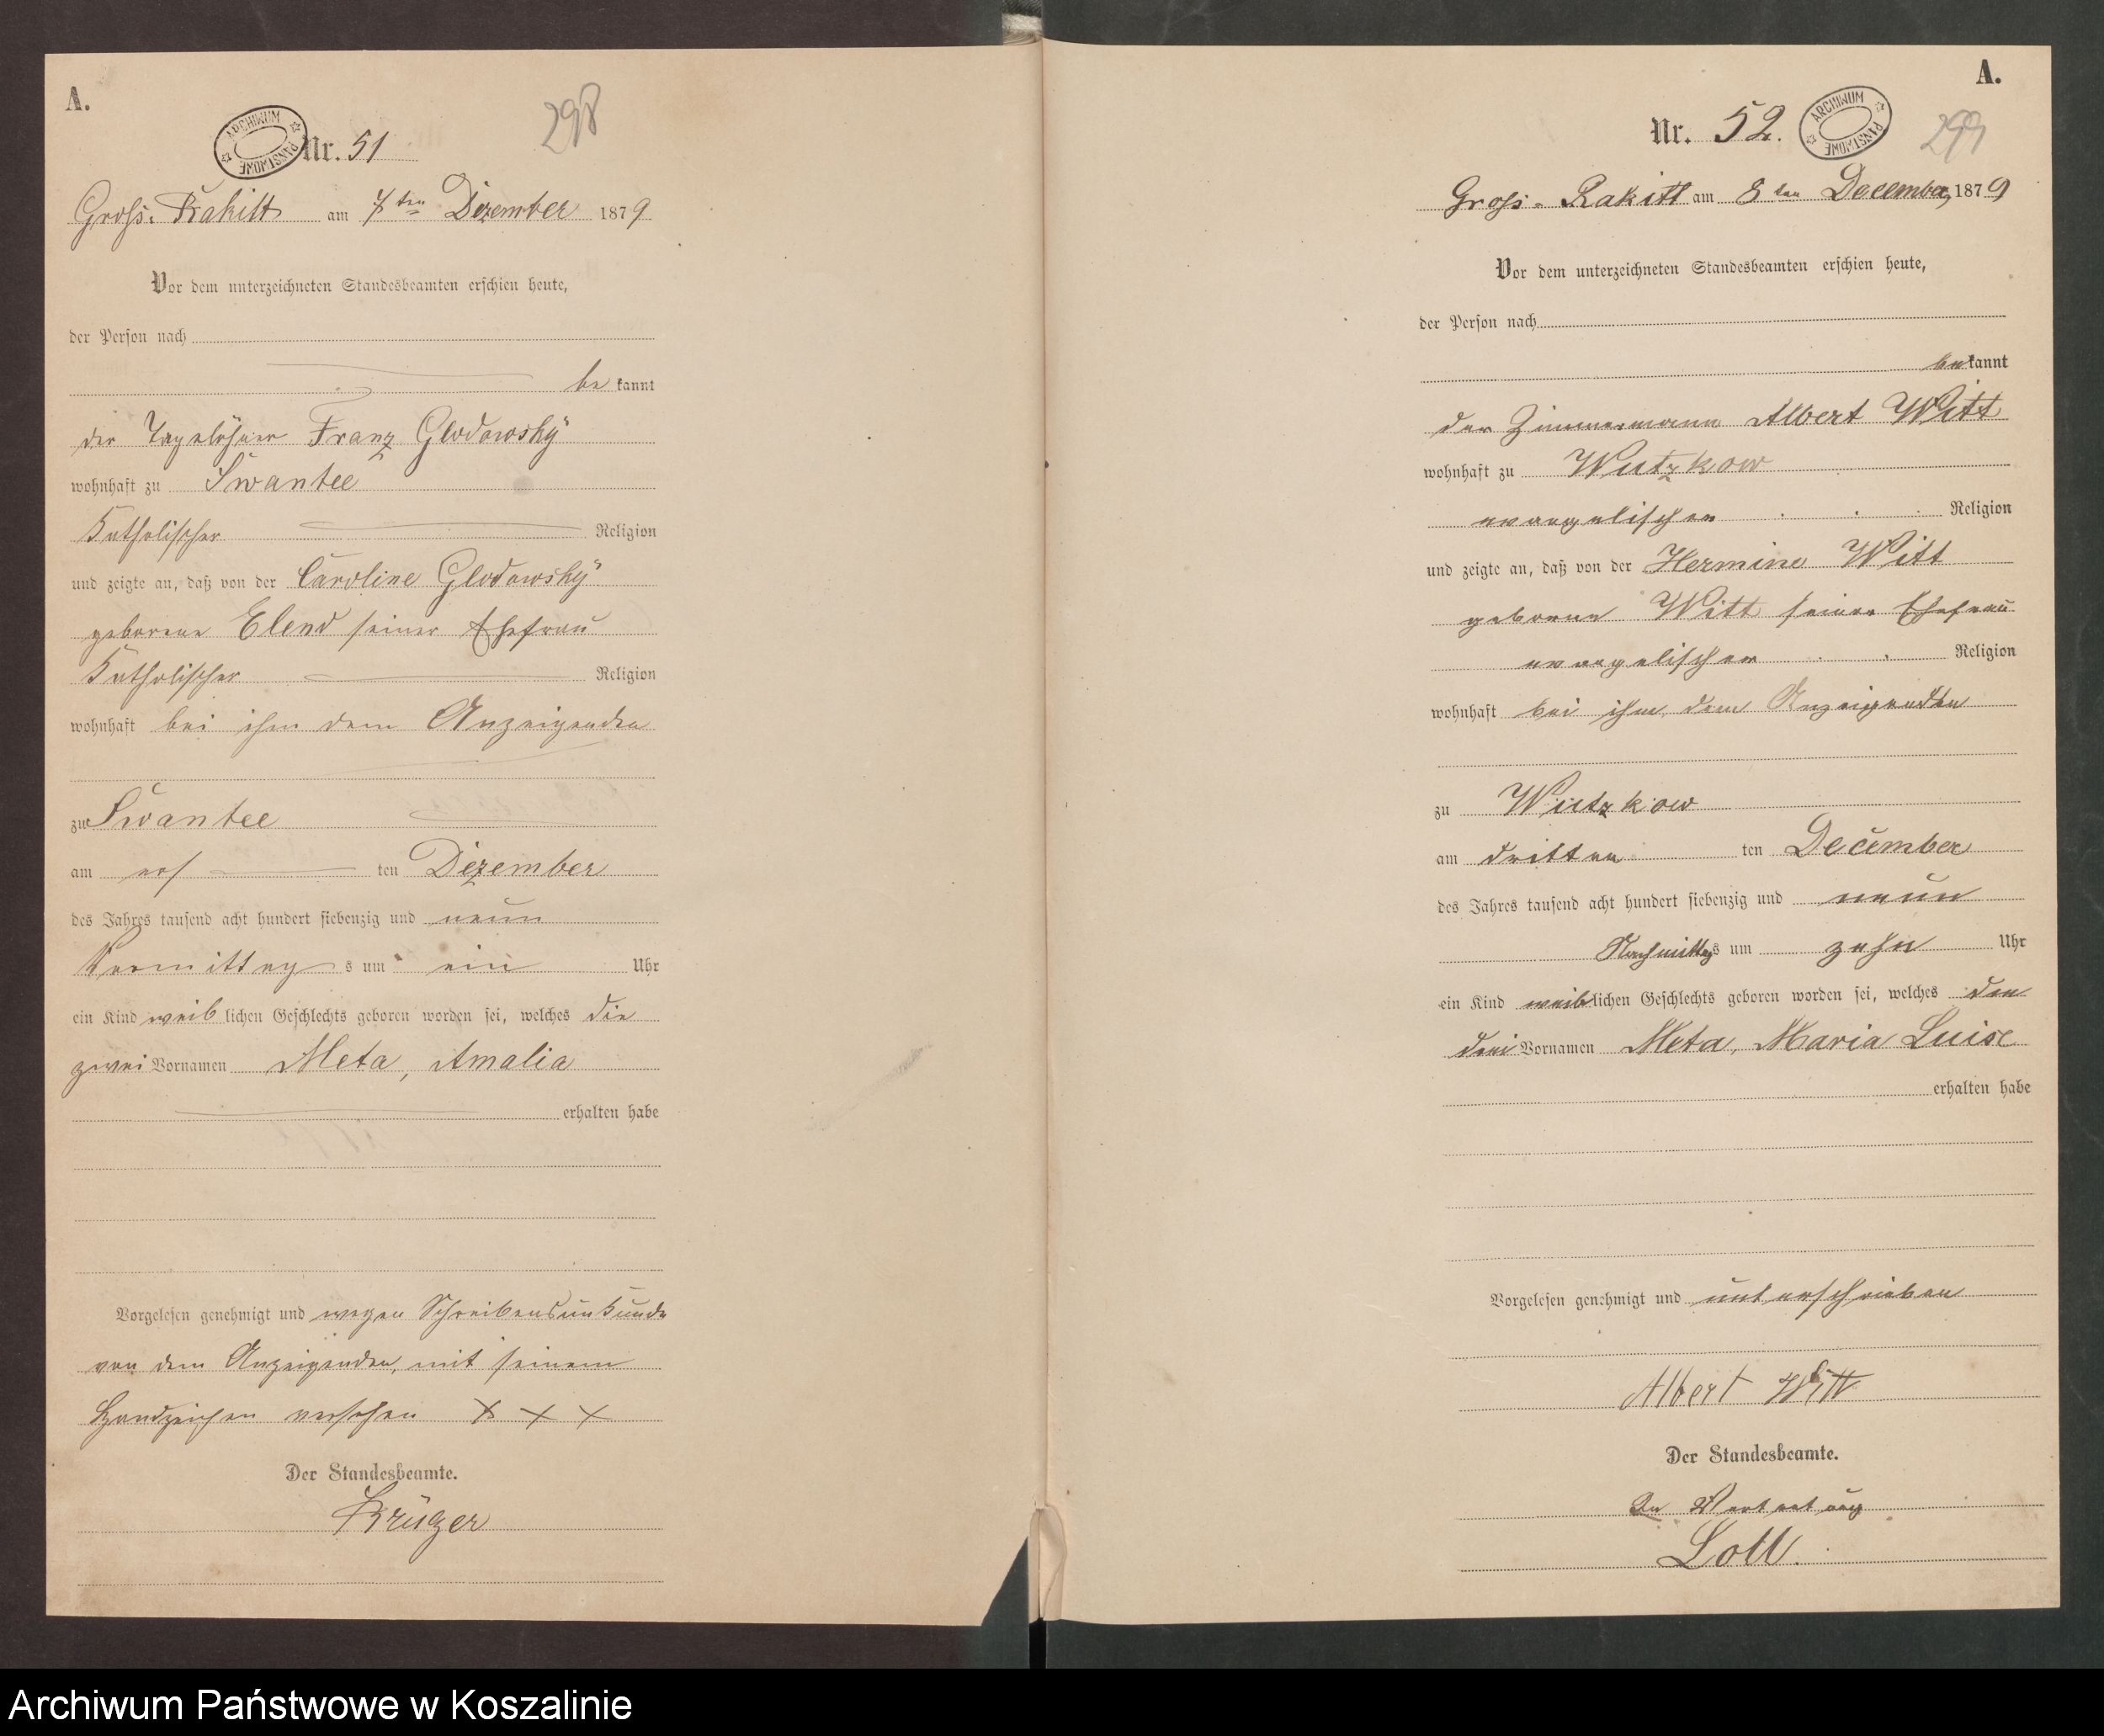 A.
ARCHIWUM PAŃSTWOWE
Nr. 51
298
Gross-Rakitt am 7ten Dezember 1879
Vor dem unterzeichneten Standesbeamten erschien heute,
der Person nach
be kannt
der Tagelöhner Franz Glodowsky
wohnhaft zu Swantee
Katholischer Religion
und zeigte an, daß von der Caroline Glodowsky
geborene Elend seiner Ehefrau
Katholischer Religion
wohnhaft bei ihm dem Anzeigenden
zu Swantee
am ers ten Dezember
des Jahres tausend acht hundert siebenzig und neun
Vormittag s um ein Uhr
ein Kind weib lichen Geschlechts geboren worden sei, welches die
zwei Vornamen Meta, Amalia
erhalten habe
Vorgelesen genehmigt und wegen Schreibensunkunde
von dem Anzeigenden, mit seinem
Handzeichen versehen X X X
Der Standesbeamte.
Krüger
A.
Nr. 52.
ARCHIWUM PAŃSTWOWE
299
Gross-Rakitt am 8ten December 1879
Vor dem unterzeichneten Standesbeamten erschien heute,
der Person nach
bekannt
der Zimmermann Albert Witt
wohnhaft zu Wutzkow
evangelischer Religion
und zeigte an, daß von der Hermine Witt
geborene Witt seiner Ehefrau
evangelischer Religion
wohnhaft bei ihm, dem Anzeigenden
zu Wutzkow
am dritten ten December
des Jahres tausend acht hundert siebenzig und neun
Nachmittags um zehn Uhr
ein Kind weiblichen Geschlechts geboren worden sei, welches den
drei Vornamen Meta, Maria Luise
erhalten habe
Vorgelesen genehmigt und unterschrieben
Albert Witt
Der Standesbeamte.
In Vertretung
Loll.
Archiwum Państwowe w Koszalinie